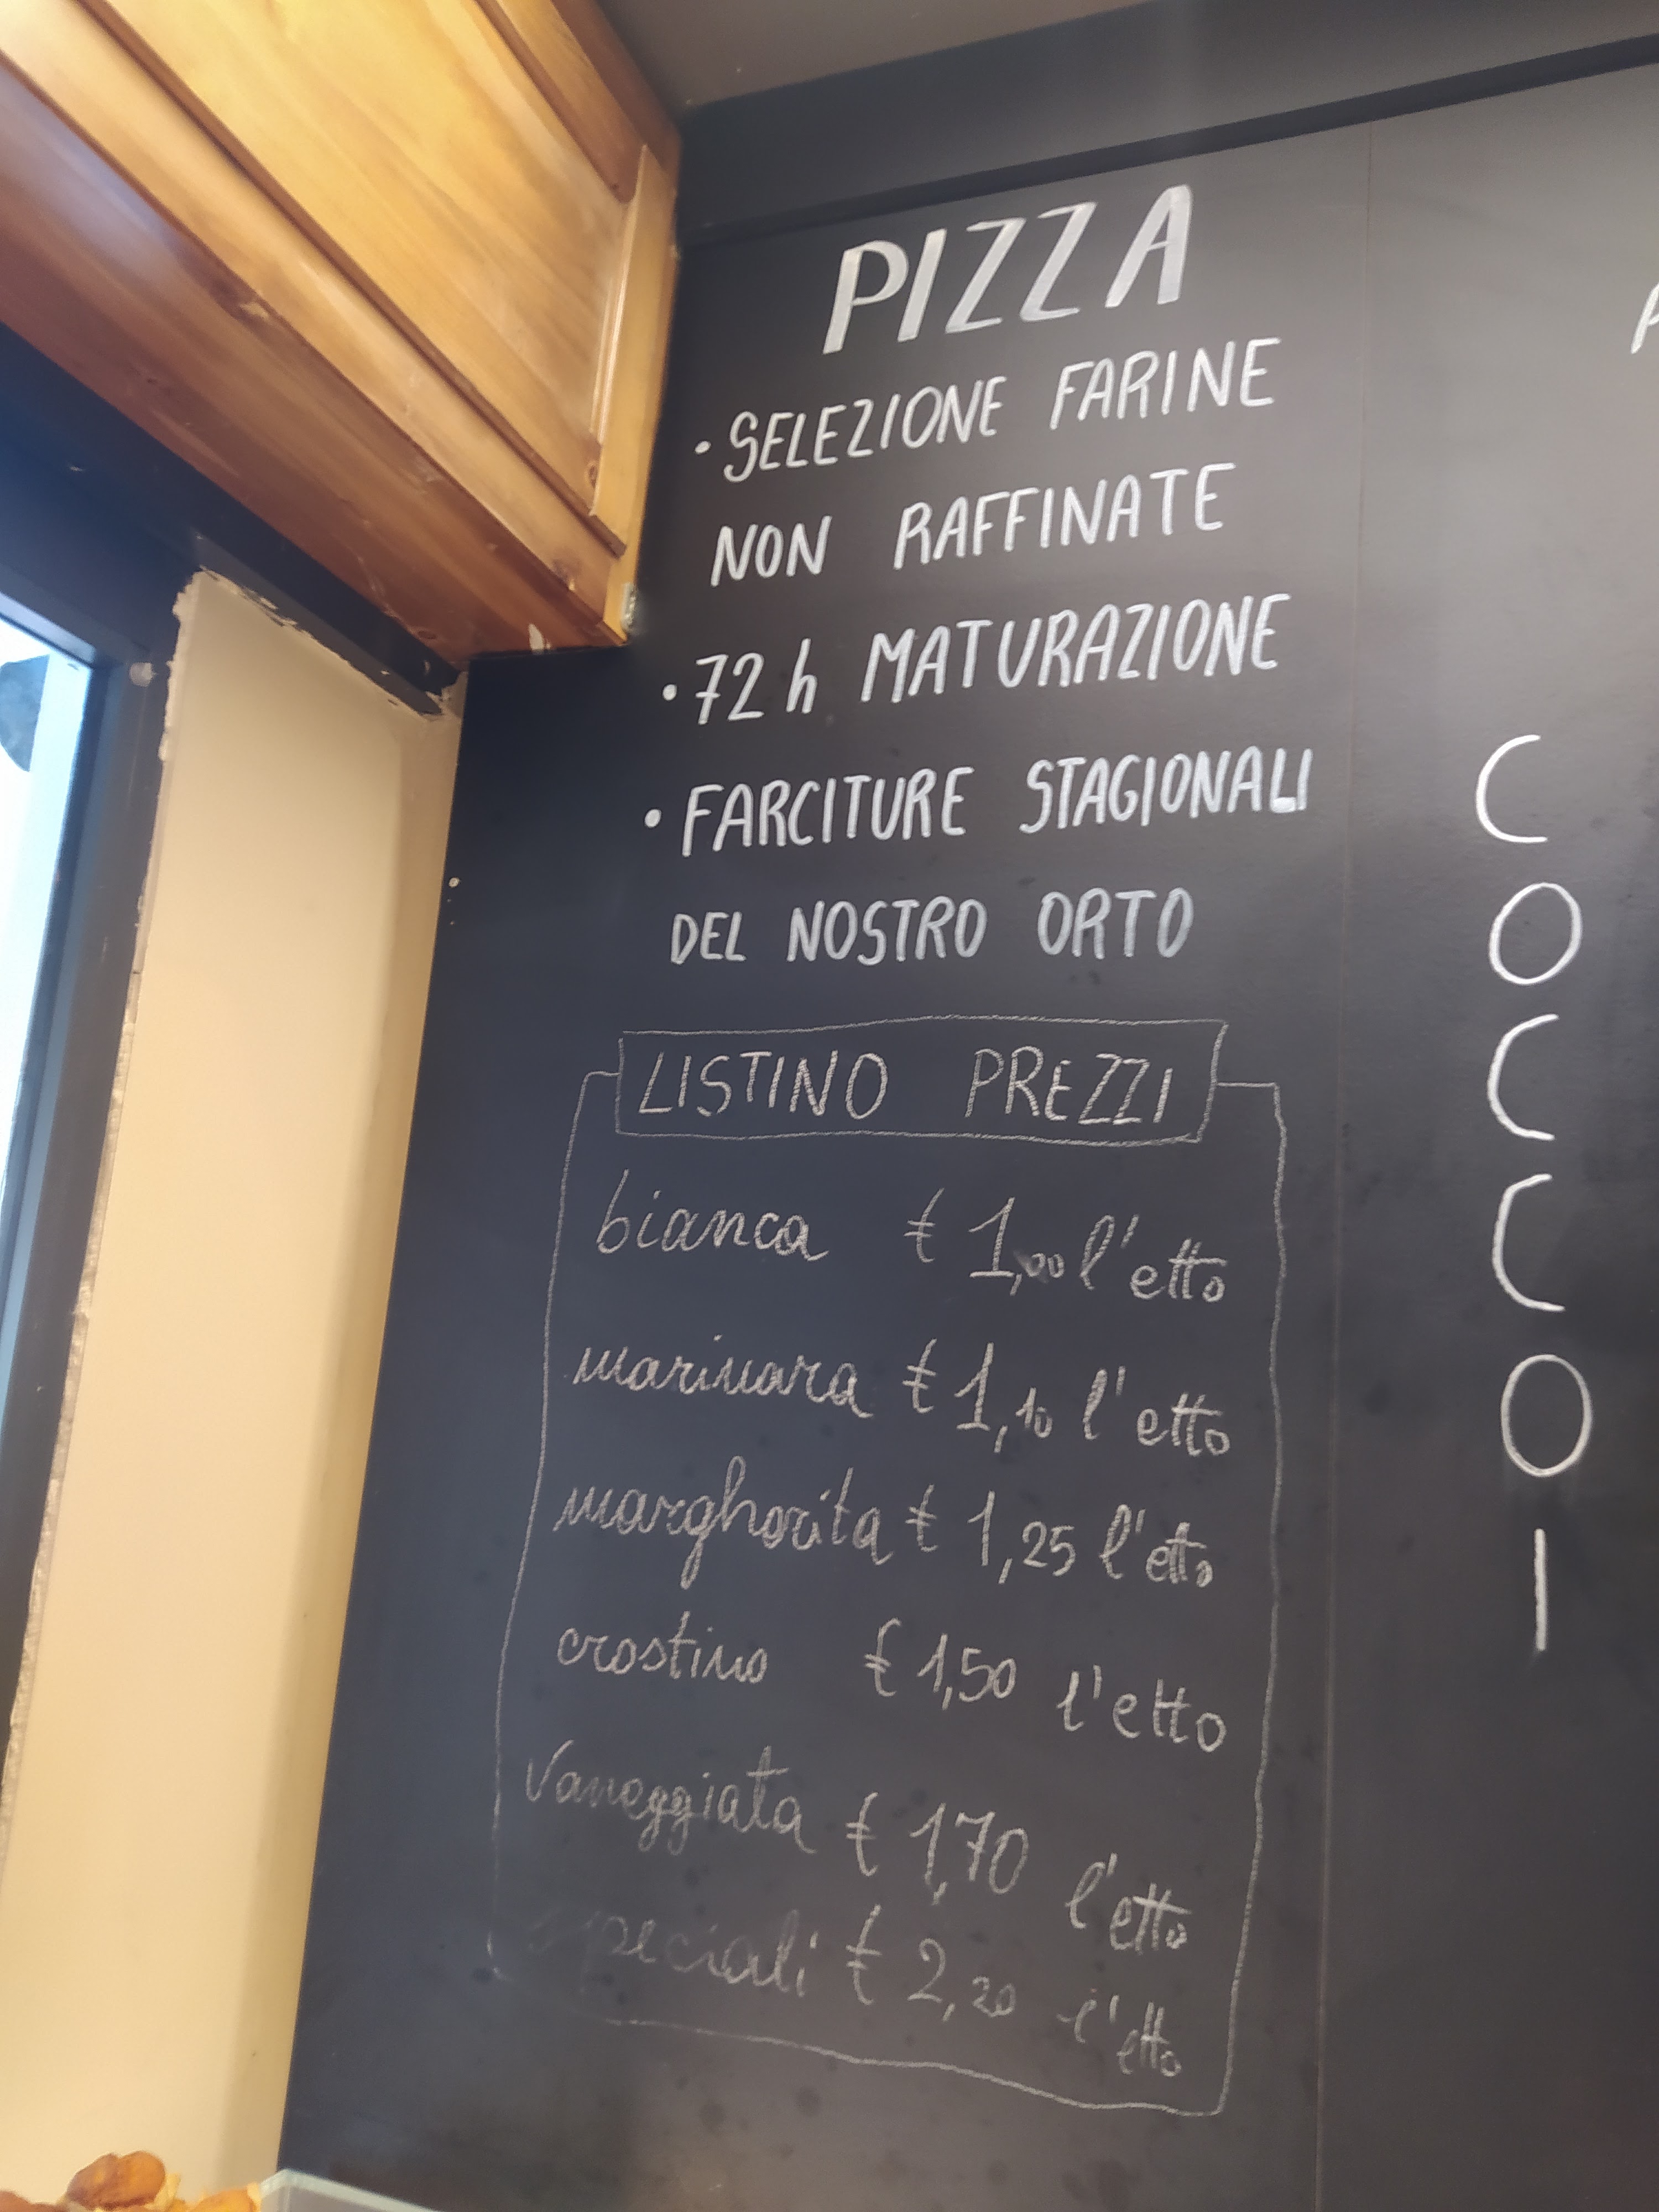 PIZZA
• SELEZIONE FARINE
NON RAFFINATE
• 72 h MATURAZIONE
• FARCITURE STAGIONALI
DEL NOSTRO ORTO
LISTINO PREZZI
bianca € 1,00 l'etto
marinara € 1,10 l'etto
margherita € 1,25 l'etto
crostino € 1,50 l'etto
Vaneggiata € 1,70 l'etto
speciali € 2,20 l'etto
C
O
C
C
O
I